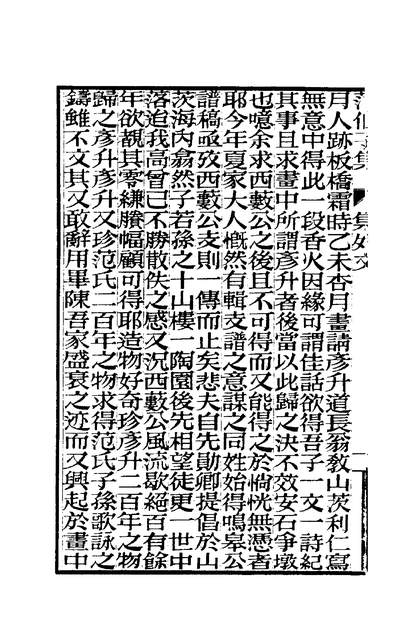 月人跡板橋霜時乙未杏月畫請彥升道長翁教山茨利仁寫
無意中得此一段香火因緣可謂佳話欲得吾子一文一詩紀
其事且求畫中所謂彥升者後當以此歸之決不效安石爭墩
也噫余求西藪公之後且不可得而又能得之於惝恍無憑者
耶今年夏家大人慨然有輯支譜之意謀之同姓始得鳴皋公
譜稿亟攷西藪公支則一傳而止矣悲夫自先勛卿提倡於山
茨海內翕然子若孫之十山樓一陶園後先相望徒更一世中
落追我高曾已不勝散佚之感又況西藪公風流歇絕百有餘
年欲覩其零縑賸幅顧可得耶造物好奇珍彥升二百年之物
歸之彥升彥升又珍范氏二百年之物求得范氏子孫歌詠之
鑄雖不文其又敢辭用畢陳吾家盛衰之迹而又興起於畫中